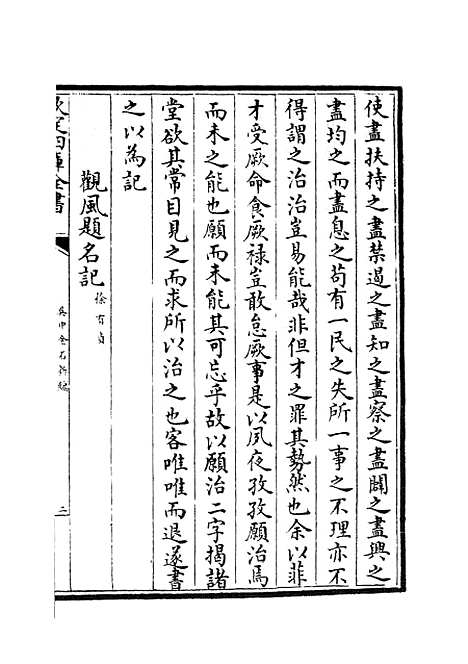 使盡扶持之盡禁遏之盡知之盡察之盡闢之盡興之
盡均之而盡息之苟有一民之失所一事之不理亦不
得謂之治治豈易能哉非但才之罪其勢然也余以菲
才受厥命食厥禄豈敢怠厥事是以夙夜孜孜願治焉
而未之能也願而未能其可忘乎故以願治二字揭諸
堂欲其常目見之而求所以治之也客唯唯而退遂書
之以為記
觀風題名記
徐有貞
欽定四庫全書
吳中金石新編
二